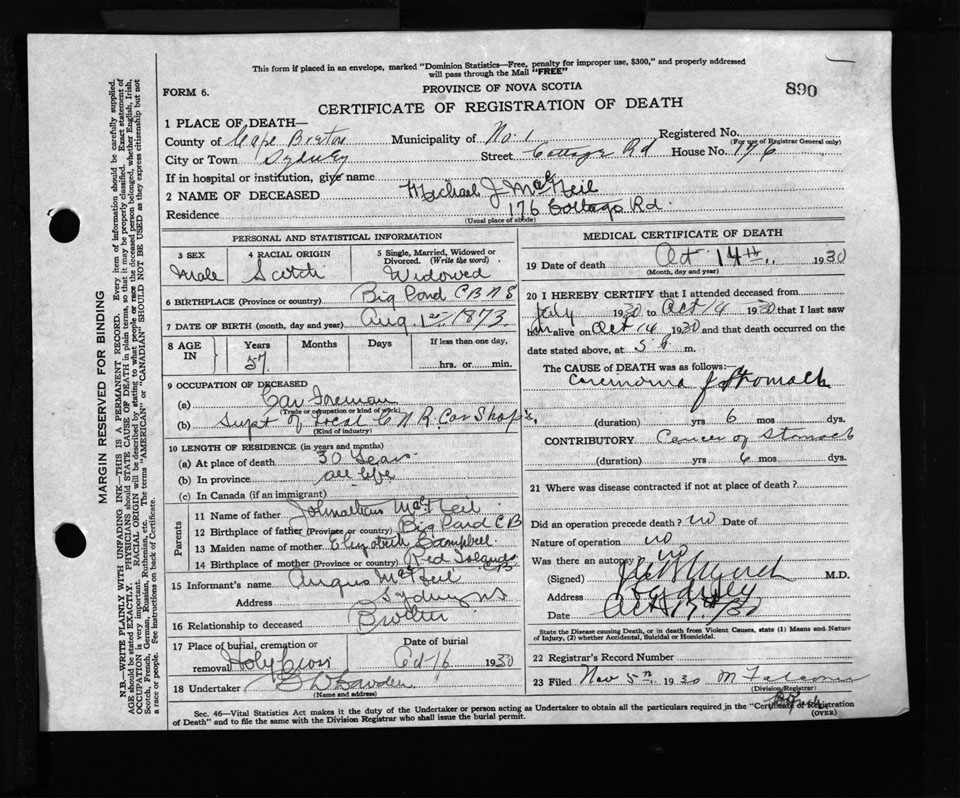 This form if placed in an envelope, marked "Dominion Statistics—Free, penalty for improper use, $300," and properly addressed
will pass through the Mail "FREE"
FORM 6.
PROVINCE OF NOVA SCOTIA
890
CERTIFICATE OF REGISTRATION OF DEATH
1 PLACE OF DEATH—
County of Cape Breton Municipality of No. 1 Registered No.
(For use of Registrar General only)
City or Town Sydney Street Cottage Rd House No. 176
If in hospital or institution, give name
2 NAME OF DECEASED Michael J McNeil
Residence 176 Cottage Rd.
(Usual place of abode)
PERSONAL AND STATISTICAL INFORMATION
3 SEX
Male
4 RACIAL ORIGIN
Scotch
5 Single, Married, Widowed or
Divorced. (Write the word)
Widowed
6 BIRTHPLACE (Province or country) Big Pond C B N S
7 DATE OF BIRTH (month, day and year) Aug 1st 1873
8 AGE
IN
Years
57
Months
Days
If less than one day,
hrs. or min.
9 OCCUPATION OF DECEASED
(a) Car Foreman
(Trade or occupation or kind of work)
(b) Supt of Local C N R Car Shops.
(Kind of industry)
10 LENGTH OF RESIDENCE (in years and months)
(a) At place of death 30 Years
(b) In province all life
(c) In Canada (if an immigrant)
Parents
11 Name of father Johnathan McNeil
12 Birthplace of father (Province or country) Big Pond CB
13 Maiden name of mother Elizabeth Campbell
14 Birthplace of mother (Province or country) Red Islands CB
15 Informant's name Angus McNeil
Address Sydney NS
16 Relationship to deceased Brother
17 Place of burial, cremation or
removal Holy Cross
Date of burial
Oct 16 1930
18 Undertaker
(Name and address)
MEDICAL CERTIFICATE OF DEATH
19 Date of death Oct 14th 1930
(Month, day and year)
20 I HEREBY CERTIFY that I attended deceased from
July 1930 to Oct 14 1930 that I last saw
him alive on Oct 14 1930 and that death occurred on
date stated above, at 5 m.
The CAUSE OF DEATH was as follows:
Carcinoma of Stomach
(duration) yrs 6 mos dys.
CONTRIBUTORY Cancer of Stomach
(duration) yrs 6 mos dys.
21 Where was disease contracted if not at place of death?
Did an operation precede death? no Date of
Nature of operation no
Was there an autopsy no
(Signed) M.D.
Address Sydney
Date Oct 17th /30
State the Disease causing Death, or in death from Violent Causes, state (1) Means and Nature
of Injury, (2) whether Accidental, Suicidal or Homicidal.
22 Registrar's Record Number
23 Filed Nov 5th 1930
(Division Registrar)
Sec. 46—Vital Statistics Act makes it the duty of the Undertaker or person acting as Undertaker to obtain all the particulars required in the "Certificate of Registration
of Death" and to file the same with the Division Registrar who shall issue the burial permit.
(OVER)
MARGIN RESERVED FOR BINDING
N.B.—WRITE PLAINLY WITH UNFADING INK—THIS IS A PERMANENT RECORD. Every item of information should be carefully supplied.
AGE should be stated EXACTLY. PHYSICIANS should STATE CAUSE OF DEATH in plain terms, so that it may be properly classified. Exact statement of
OCCUPATION is very important. RACIAL ORIGIN will be described by stating to what people or race the deceased person belonged, whether English, Irish,
Scotch, French, German, Russian, Ruthenian, etc. The terms "AMERICAN" or "CANADIAN" SHOULD NOT BE USED as they express citizenship but not
a race or people. See instructions on back of Certificate.